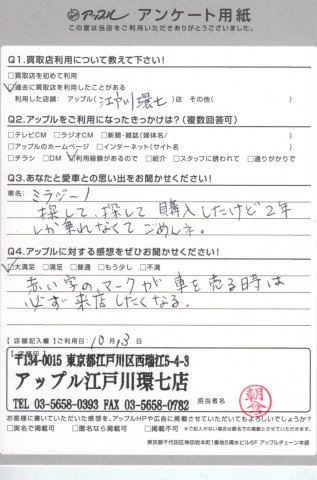 アップル アンケート用紙
この度は当店をご利用いただきありがとうございました。
Q1.買取店利用について教えて下さい!
□買取店を初めて利用
□過去に買取店を利用したことがある
利用した店舗: アップル( 江戸川環七 )店 その他( )
Q2.アップルをご利用になったきっかけは?(複数回答可)
□テレビCM □ラジオCM □新聞・雑誌(媒体名/ )
□アップルのホームページ □インターネット(サイト名 )
□チラシ □DM □利用経験があるので □紹介 □スタッフに誘われて □通りがかりで
Q3.あなたと愛車との思い出をお聞かせください!
車名: ミラジーノ
探して、探して購入したけど2年
しか乗れなくてごめんネ。
Q4.アップルに対する感想をぜひお聞かせください!
□大満足 □満足 □普通 □もう少し □不満
赤い字のマークが車を売る時は
必ず来店したくなる。
【店舗記入欄】ご利用日: 10月13日
〒134-0015 東京都江戸川区西瑞江5-4-3
アップル江戸川環七店
TEL 03-5658-0393 FAX 03-5658-0782
担当者名
朝倉
お客様に書いていただいた感想を、アップルHPや広告に掲載させていただいてもよろしいでしょうか?
□実名で掲載可 □匿名なら掲載可 □掲載不可 ※ご記入がない場合は匿名での掲載とさせていただきます。
東京都千代田区神田岩本町1番地5清水ビル6F アップルチェーン本部